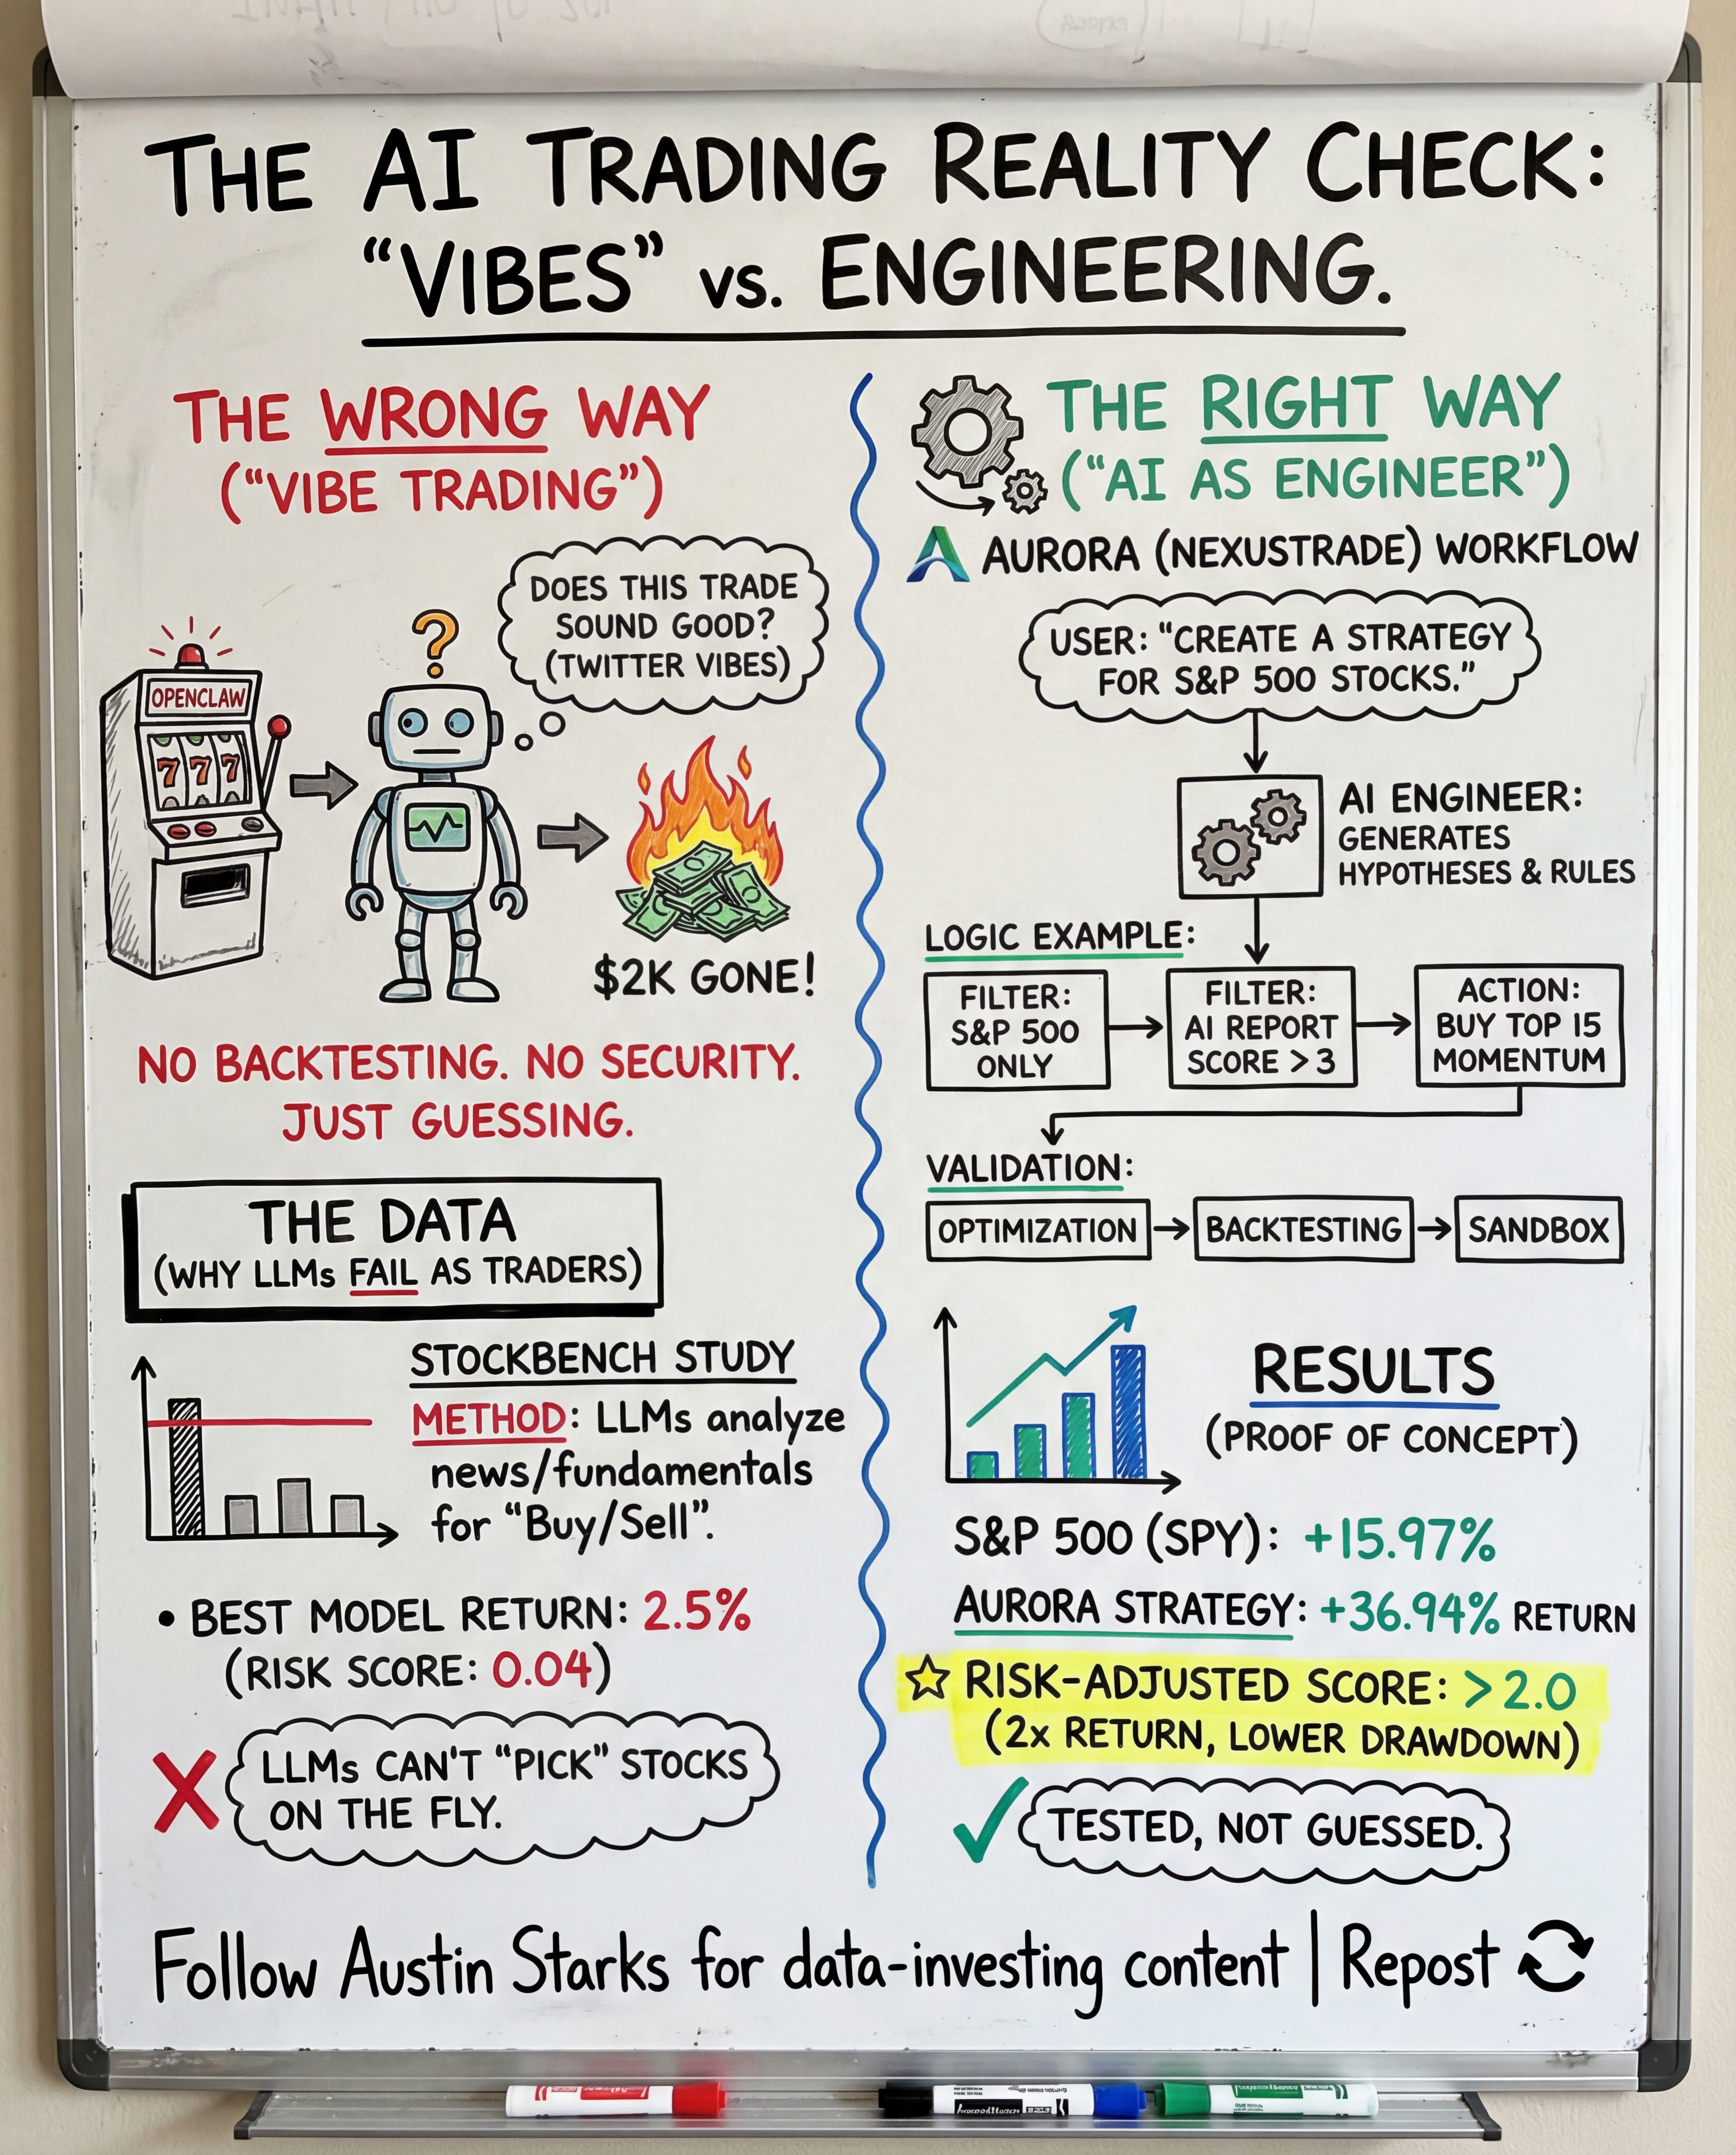 THE AI TRADING REALITY CHECK:
“VIBES” vs. ENGINEERING.
THE WRONG WAY
(“VIBE TRADING”)
DOES THIS TRADE
SOUND GOOD?
(TWITTER VIBES)
?
OPENCLAW
777
$2K GONE!
NO BACKTESTING. NO SECURITY.
JUST GUESSING.
THE DATA
(WHY LLMs FAIL AS TRADERS)
STOCKBENCH STUDY
METHOD: LLMs analyze
news/fundamentals
for “Buy/Sell”.
• BEST MODEL RETURN: 2.5%
(RISK SCORE: 0.04)
LLMs CAN'T “PICK” STOCKS
ON THE FLY.
THE RIGHT WAY
(“AI AS ENGINEER”)
AURORA (NEXUSTRADE) WORKFLOW
USER: “CREATE A STRATEGY
FOR S&P 500 STOCKS.”
AI ENGINEER:
GENERATES
HYPOTHESES & RULES
LOGIC EXAMPLE:
FILTER:
S&P 500
ONLY
FILTER:
AI REPORT
SCORE > 3
ACTION:
BUY TOP 15
MOMENTUM
VALIDATION:
OPTIMIZATION
BACKTESTING
SANDBOX
RESULTS
(PROOF OF CONCEPT)
S&P 500 (SPY): +15.97%
AURORA STRATEGY: +36.94% RETURN
RISK-ADJUSTED SCORE: > 2.0
(2x RETURN, LOWER DRAWDOWN)
TESTED, NOT GUESSED.
Follow Austin Starks for data-investing content | Repost